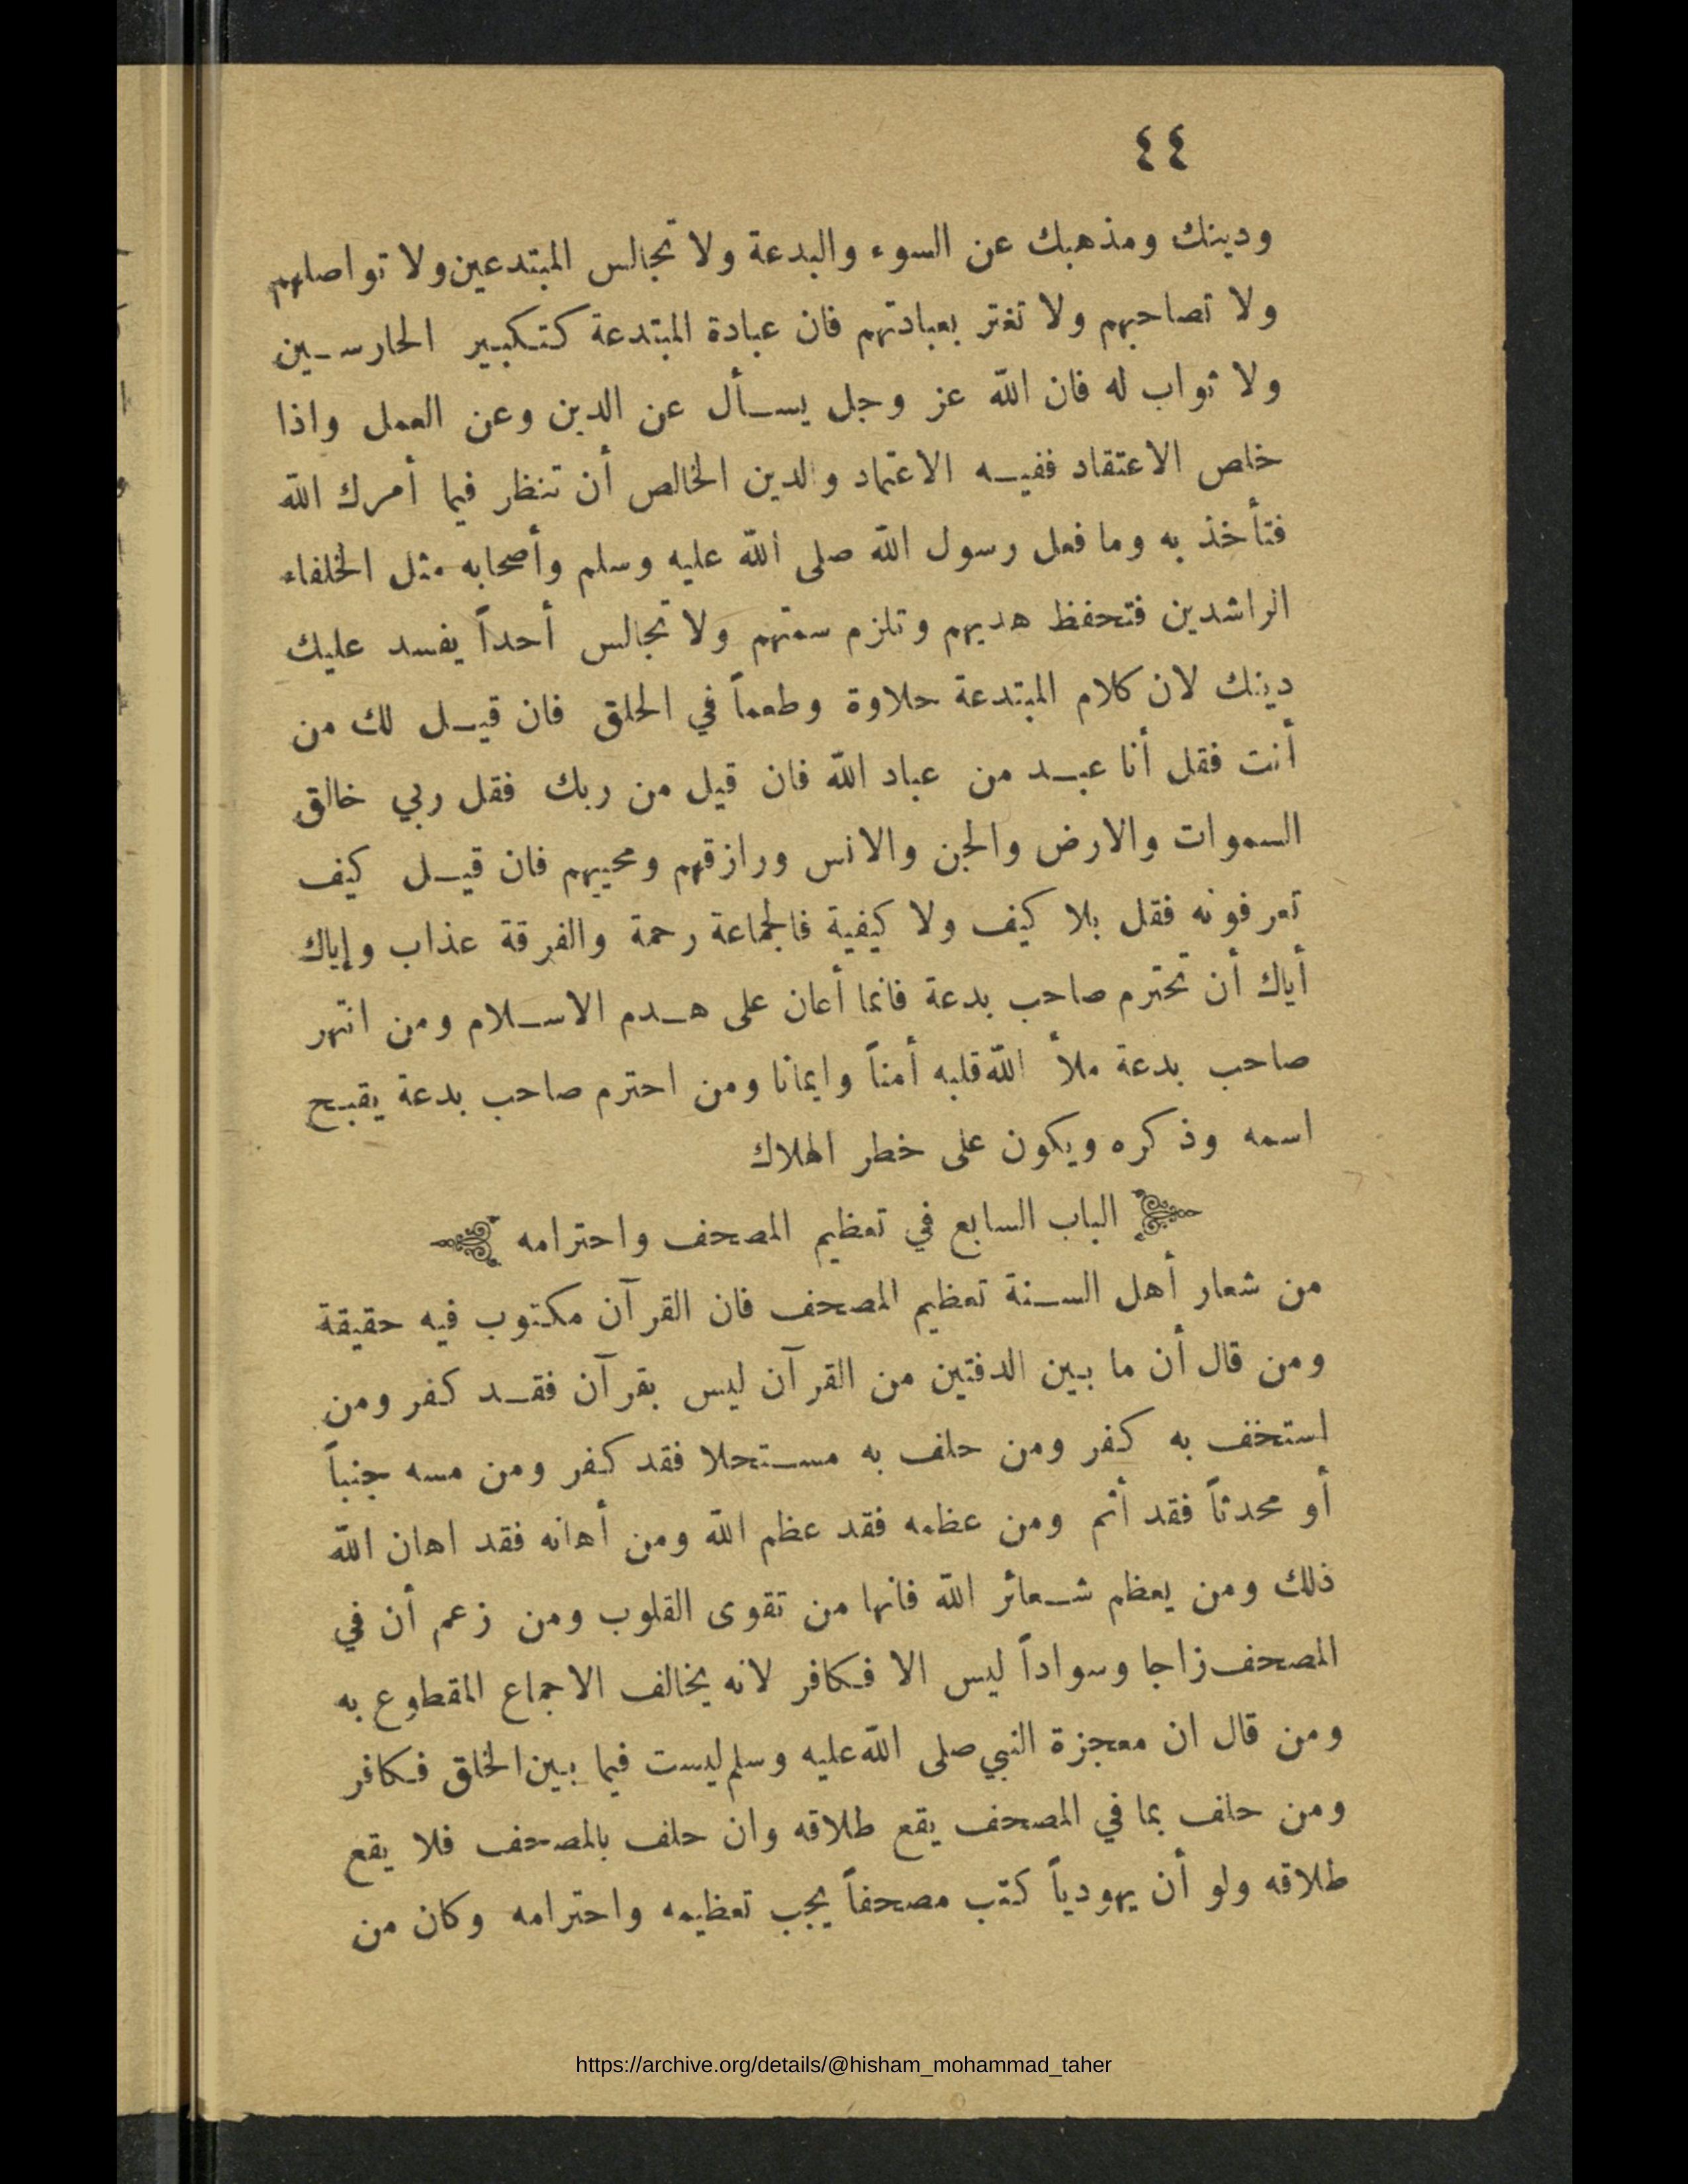 ٤٤
ودينك ومذهبك عن السوء والبدعة ولا تجالس المبتدعين ولا تواصلهم
ولا تصاحبهم ولا تغتر بعبادتهم فان عبادة المبتدعة كتكبير الحارسين
ولا ثواب له فان الله عز وجل يسأل عن الدين وعن العمل واذا
خلص الاعتقاد ففيه الاعتماد والدين الخالص أن تنظر فيما أمرك الله
فتأخذ به وما فعل رسول الله صلى الله عليه وسلم وأصحابه مثل الخلفاء
الراشدين فتحفظ هديهم وتلزم سمتهم ولا تجالس أحداً يفسد عليك
دينك لان كلام المبتدعة حلاوة وطعماً في الحلق فان قيل لك من
أنت فقل أنا عبد من عباد الله فان قيل من ربك فقل ربي خالق
السموات والارض والجن والانس ورازقهم ومحييهم فان قيل كيف
تعرفونه فقل بلا كيف ولا كيفية فالجماعة رحمة والفرقة عذاب وإياك
أياك أن تحترم صاحب بدعة فانما أعان على هدم الاسلام ومن انتهر
صاحب بدعة ملأ الله قلبه أمناً وايمانا ومن احترم صاحب بدعة يقبح
اسمه وذكره ويكون على خطر الهلاك
الباب السابع في تعظيم المصحف واحترامه
من شعار أهل السنة تعظيم المصحف فان القرآن مكتوب فيه حقيقة
ومن قال أن ما بين الدفتين من القرآن ليس بقرآن فقد كفر ومن
استخف به كفر ومن حلف به مستحلا فقد كفر ومن مسه جنباً
أو محدثاً فقد أثم ومن عظمه فقد عظم الله ومن أهانه فقد اهان الله
ذلك ومن يعظم شعائر الله فانها من تقوى القلوب ومن زعم أن في
المصحف زاجا وسواداً ليس الا فكافر لانه يخالف الاجماع المقطوع به
ومن قال ان معجزة النبي صلى الله عليه وسلم ليست فيما بين الخلق فكافر
ومن حلف بما في المصحف يقع طلاقه وان حلف بالمصحف فلا يقع
طلاقه ولو أن يهودياً كتب مصحفاً يجب تعظيمه واحترامه وكان من
https://archive.org/details/@hisham_mohammad_taher